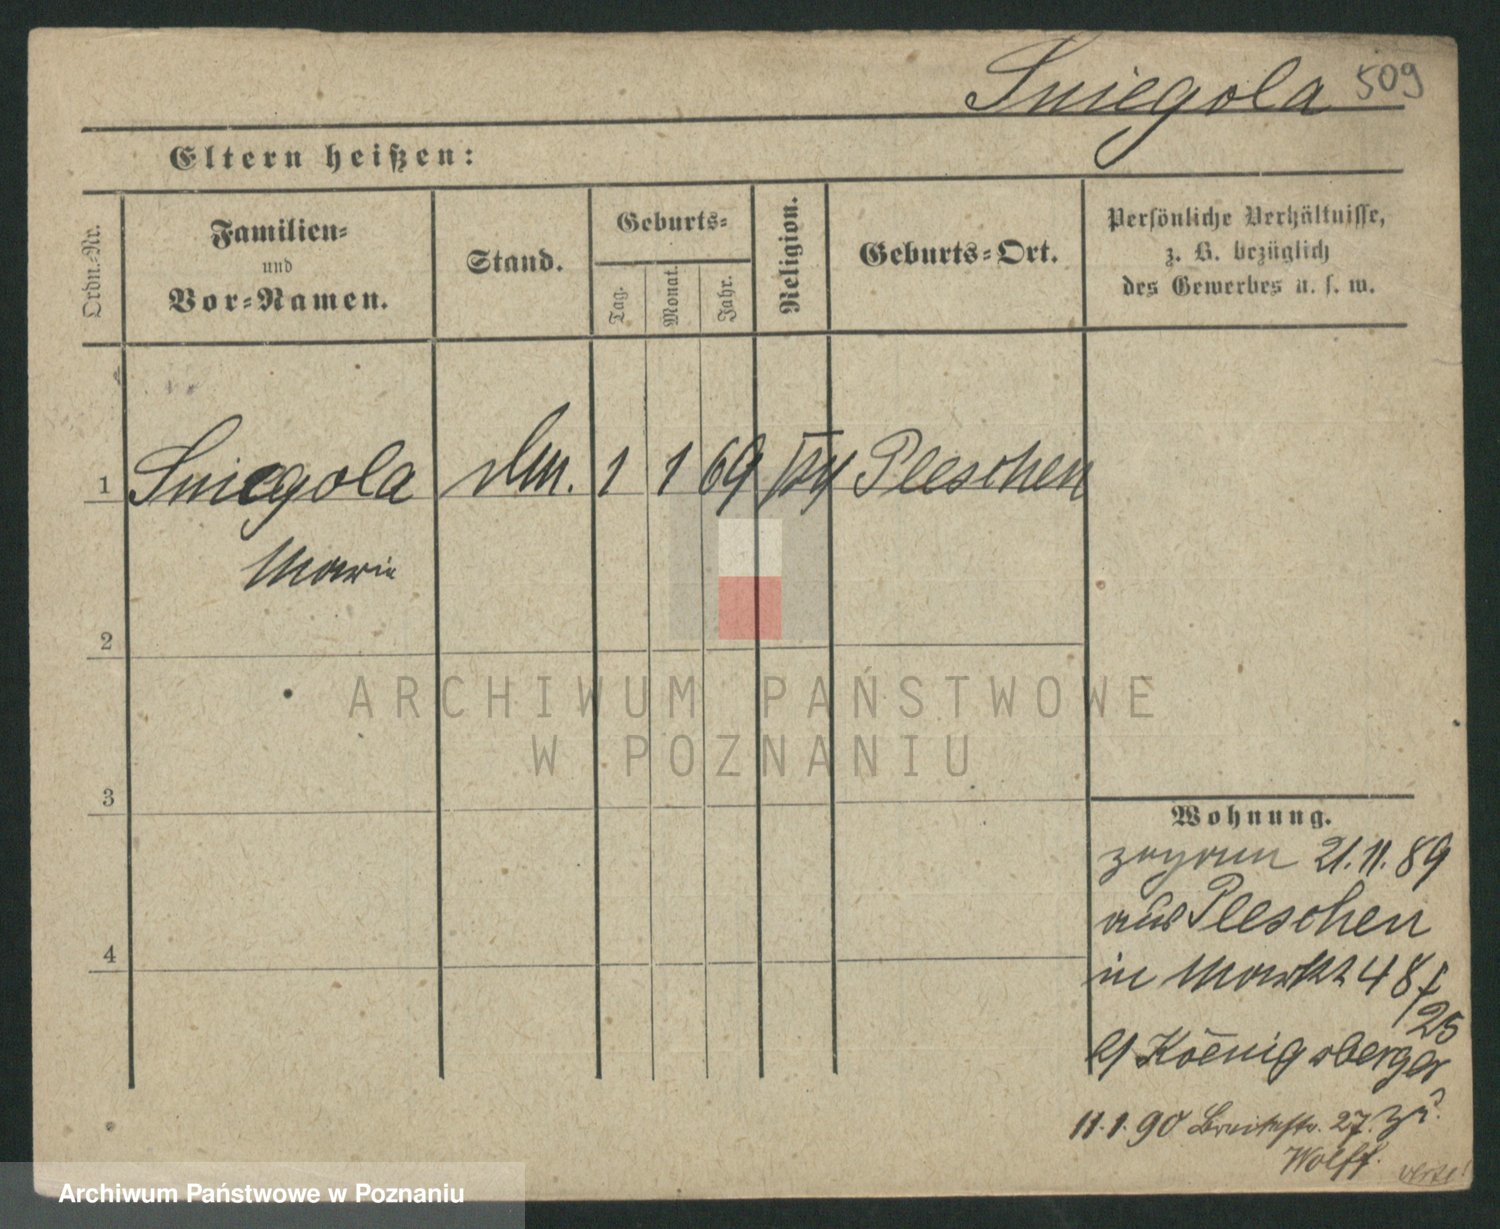 Sniegola 509
Eltern heißen:
Ordn.-Nr.
Familien-
und
Vor-Namen.
Stand.
Geburts-
Tag.
Monat.
Jahr.
Religion.
Geburts-Ort.
Persönliche Verhältnisse,
z. B. bezüglich
des Gewerbes u. s. w.
1 Sniegola 1 1 69 Pleschen
Marie
2
3
4
ARCHIWUM PAŃSTWOWE
W POZNANIU
Wohnung.
zugezogen 21.11.89
aus Pleschen
in Markt 48
25
Koenigsberger
11.1.90 Breitestr. 27. zu
Wolff.
Archiwum Państwowe w Poznaniu